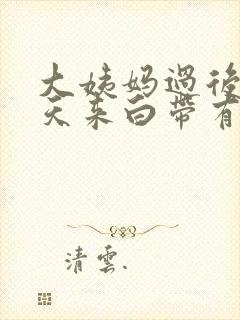 大姨妈过後
天来白带有
清雲.